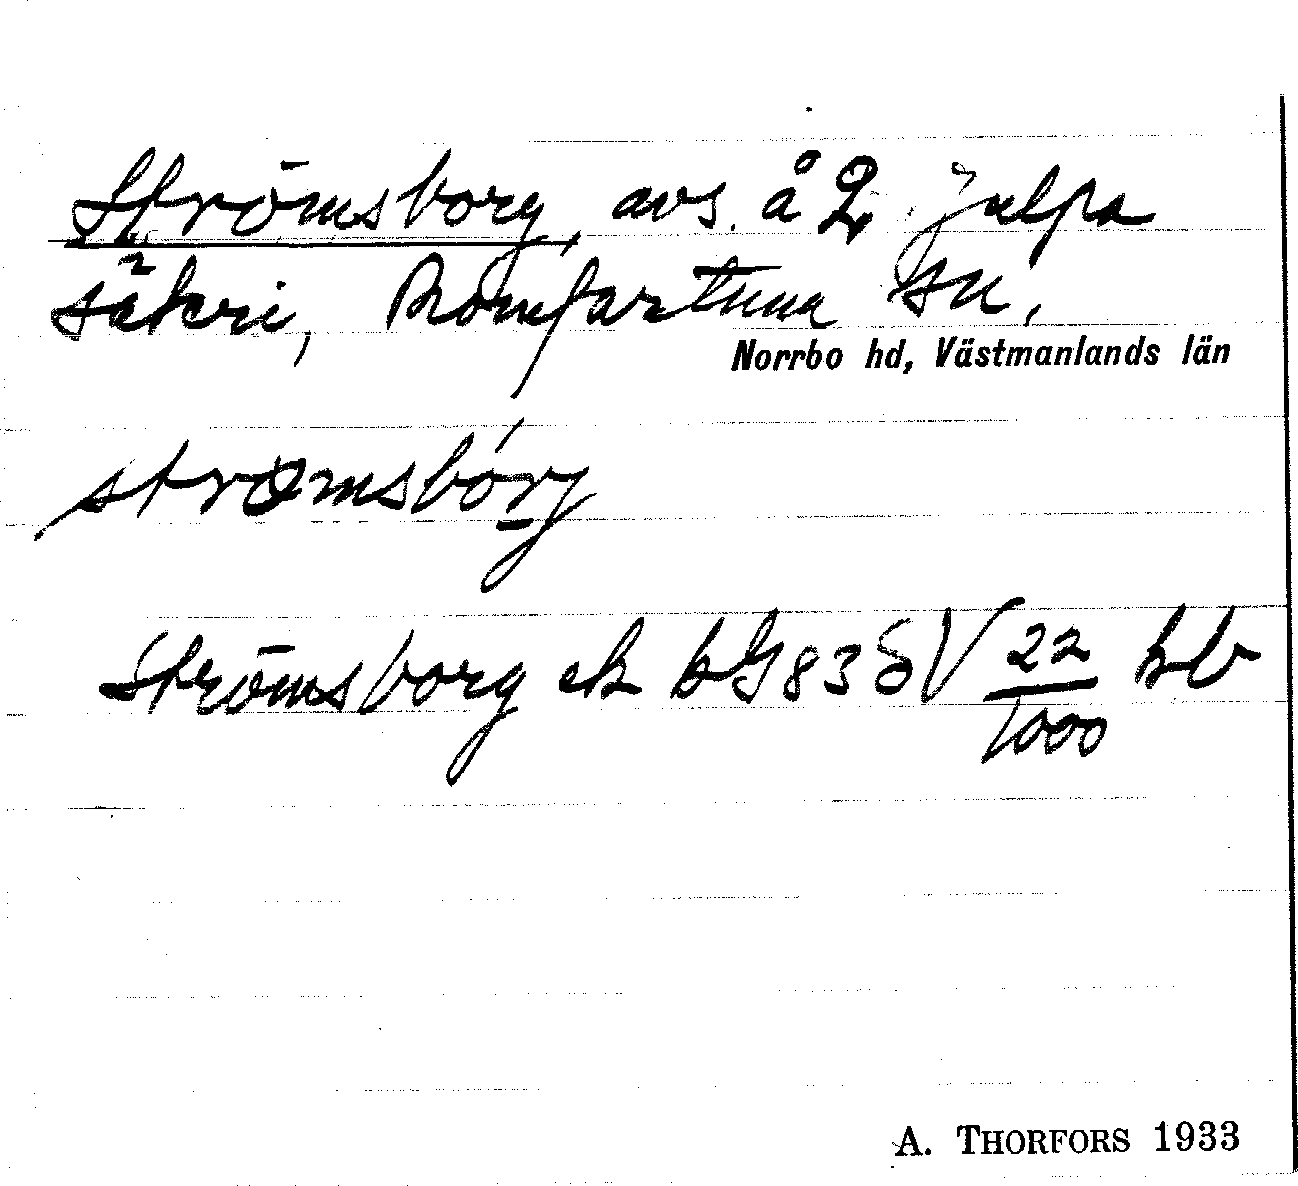 Strömsborg, avs. å 2 Julpa
säteri, Romfartuna sn.
Norrbo hd, Västmanlands län
strømsbórg
Strömsborg ek bG 83 δV 22/1000 hb
A. THORFORS 1933